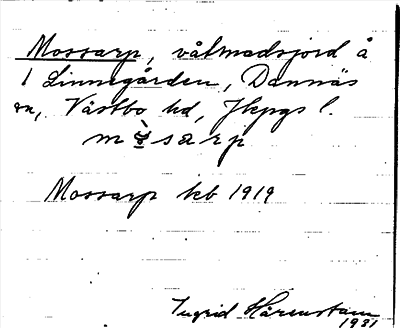 Mossarp, våtmadsjord å
1 Linnegården, Dannäs
sn, Västbo hd, Jkpgs l.
Mossarp kb 1919
Ingrid Hårenstam
1931